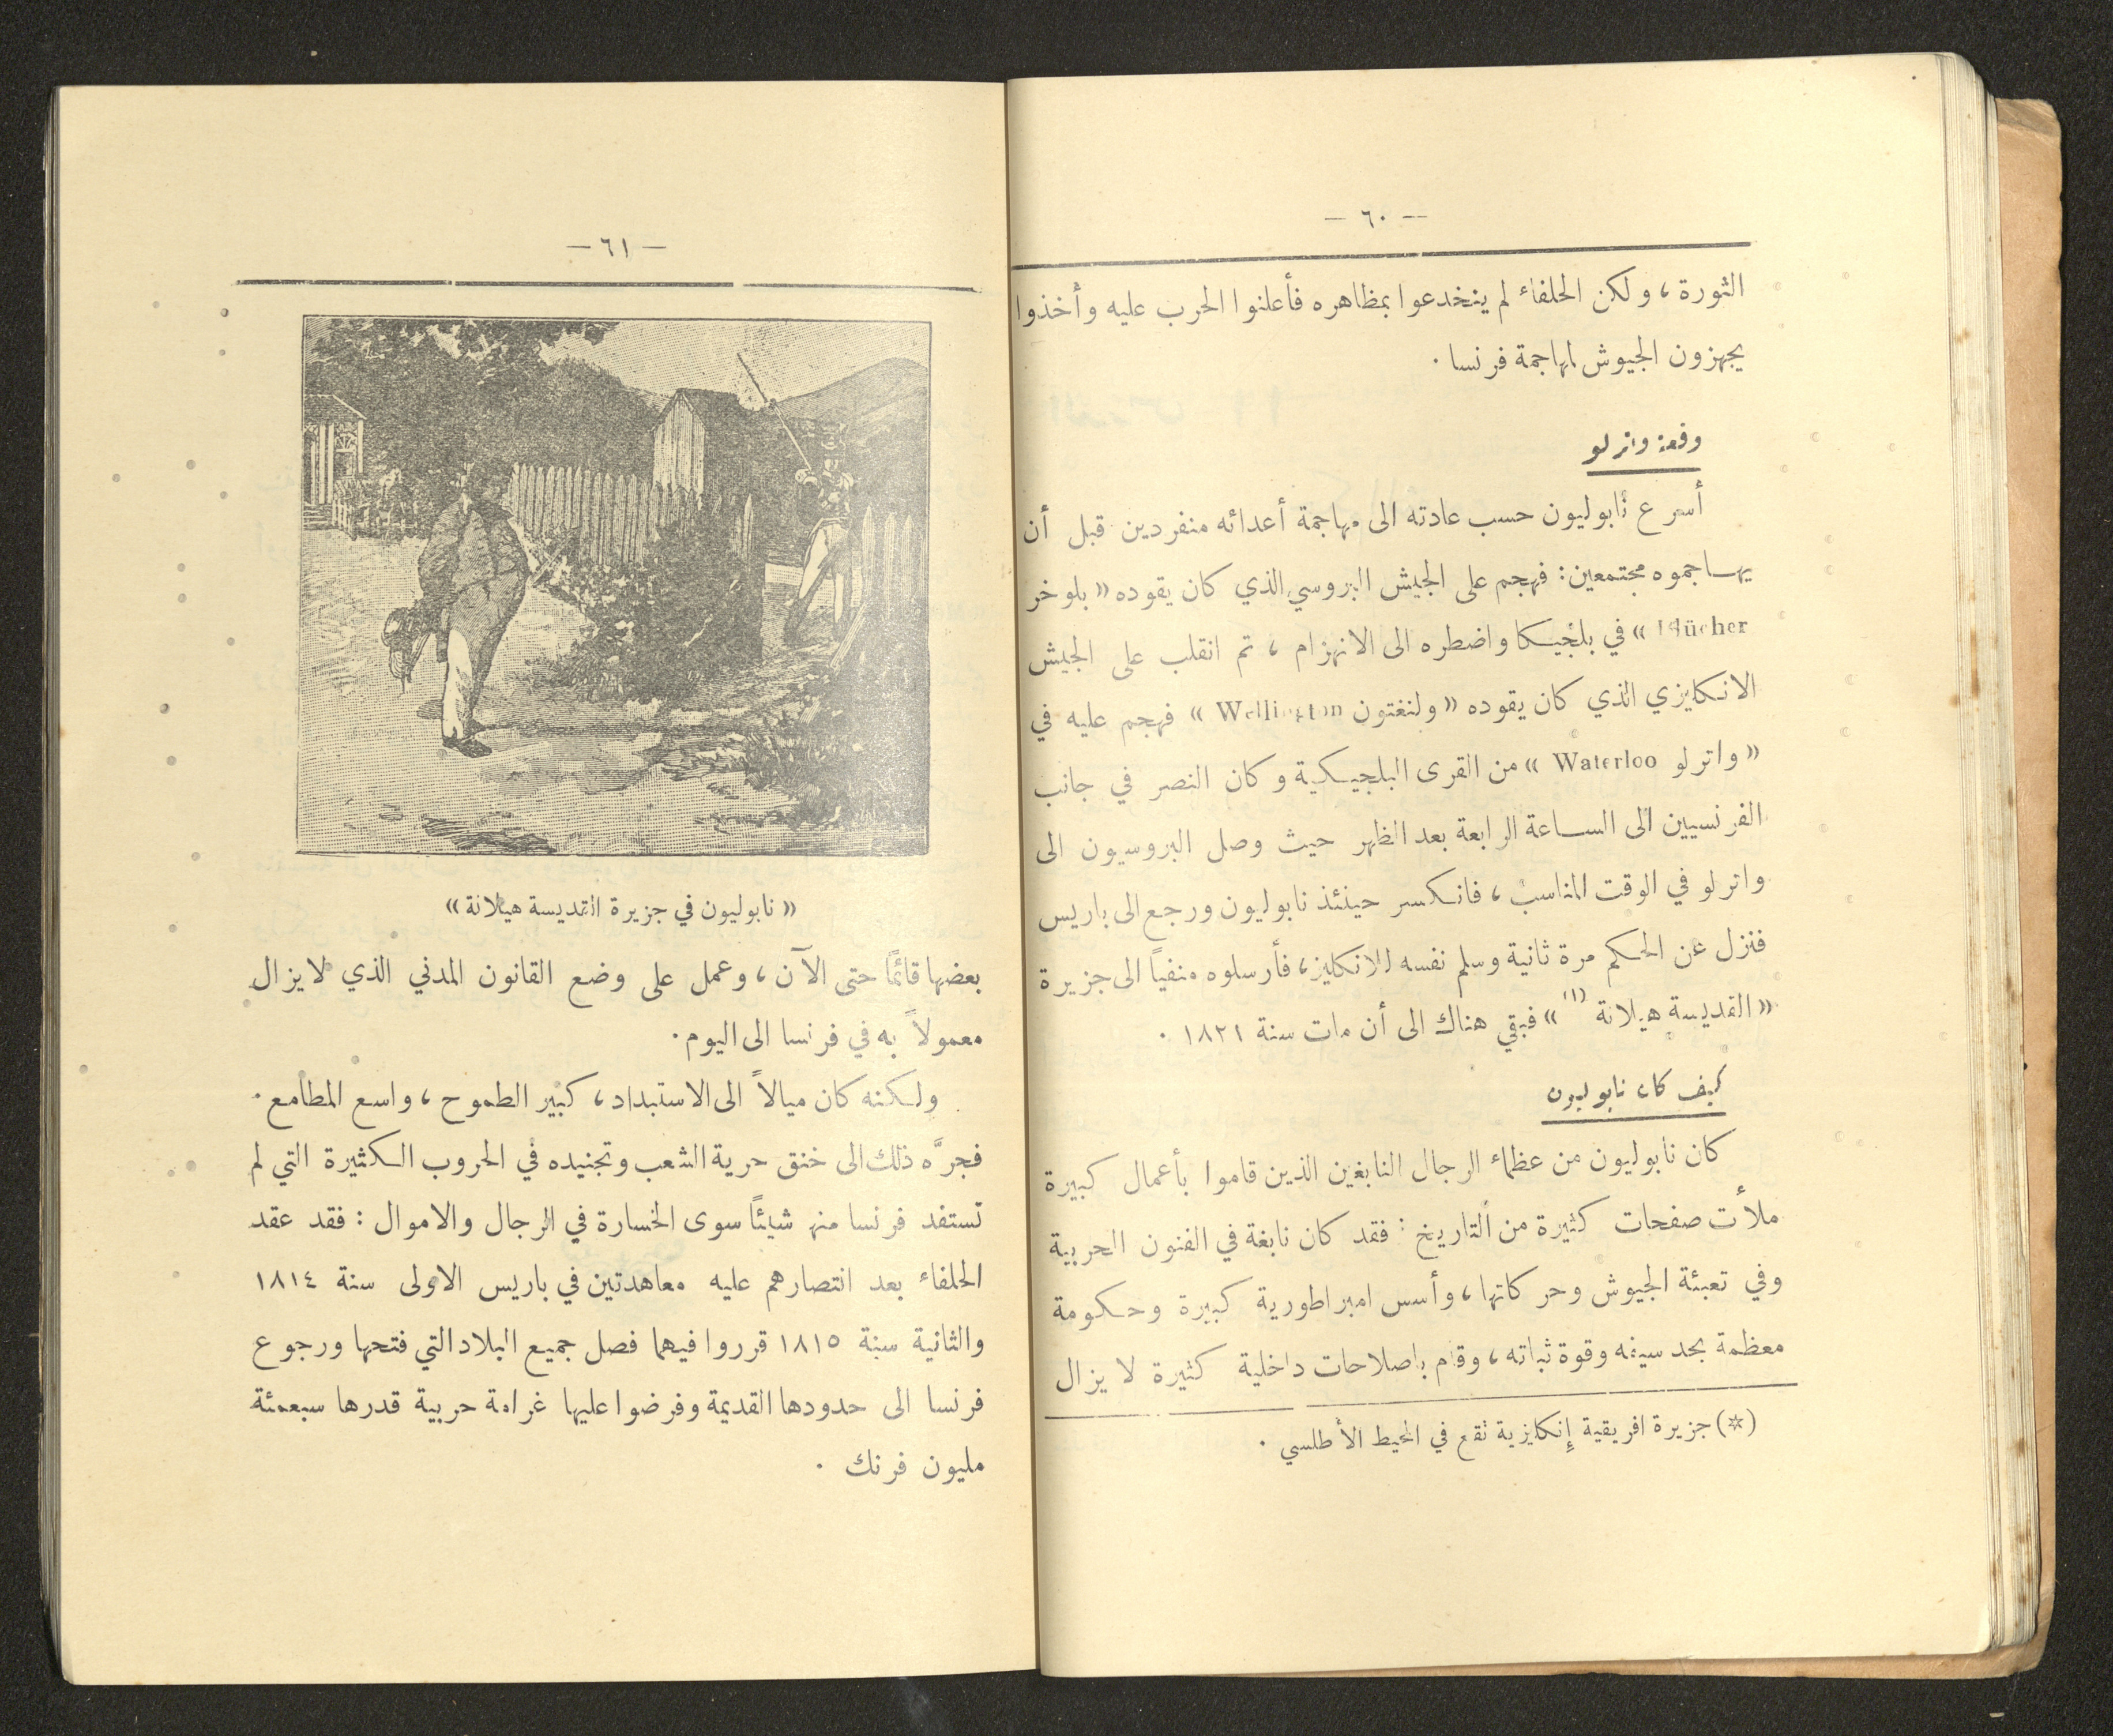 — ٦٠ —
الثورة، ولكن الحلفاء لم ينخدعوا بمظاهره فأعلنوا الحرب عليه وأخذوا
يجهزون الجيوش لمهاجمة فرنسا.
وقعة واترلو
أسرع نابوليون حسب عادته الى مهاجمة أعدائه منفردين قبل أن
يهاجموه مجتمعين: فهجم على الجيش البروسي الذي كان يقوده «بلوخر
Blücher» في بلجيكا واضطره الى الانهزام، ثم انقلب على الجيش
الانكليزي الذي كان يقوده «ولنغتون Wellington» فهجم عليه في
«واترلو Waterloo» من القرى البلجيكية وكان النصر في جانب
الفرنسيين الى الساعة الرابعة بعد الظهر حيث وصل البروسيون الى
واترلو في الوقت المناسب، فانكسر حينئذ نابوليون ورجع الى باريس
فنزل عن الحكم مرة ثانية وسلم نفسه للانكليز، فأرسلوه منفياً الى جزيرة
«القديسة هيلانة (١)» فبقي هناك الى أن مات سنة ١٨٢١.
كيف كان نابوليون
كان نابوليون من عظماء الرجال النابغين الذين قاموا بأعمال كبيرة
ملأت صفحات كثيرة من التاريخ: فقد كان نابغة في الفنون الحربية
وفي تعبئة الجيوش وحركاتها، وأسس امبراطورية كبيرة وحكومة
معظمة بحد سيفه وقوة ثباته، وقام باصلاحات داخلية كثيرة لا يزال
(*) جزيرة افريقية إنكليزية تقع في المحيط الأطلسي.
— ٦١ —
«نابوليون في جزيرة القديسة هيلانة»
بعضها قائمًا حتى الآن، وعمل على وضع القانون المدني الذي لا يزال
معمولاً به في فرنسا الى اليوم.
ولكنه كان ميالاً الى الاستبداد، كبير الطموح، واسع المطامع.
فجرَّه ذلك الى خنق حرية الشعب وتجنيده في الحروب الكثيرة التي لم
تستفد فرنسا منها شيئاً سوى الخسارة في الرجال والاموال: فقد عقد
الحلفاء بعد انتصارهم عليه معاهدتين في باريس الاولى سنة ١٨١٤
والثانية سنة ١٨١٥ قرروا فيهما فصل جميع البلاد التي فتحها ورجوع
فرنسا الى حدودها القديمة وفرضوا عليها غرامة حربية قدرها سبعمئة
مليون فرنك.